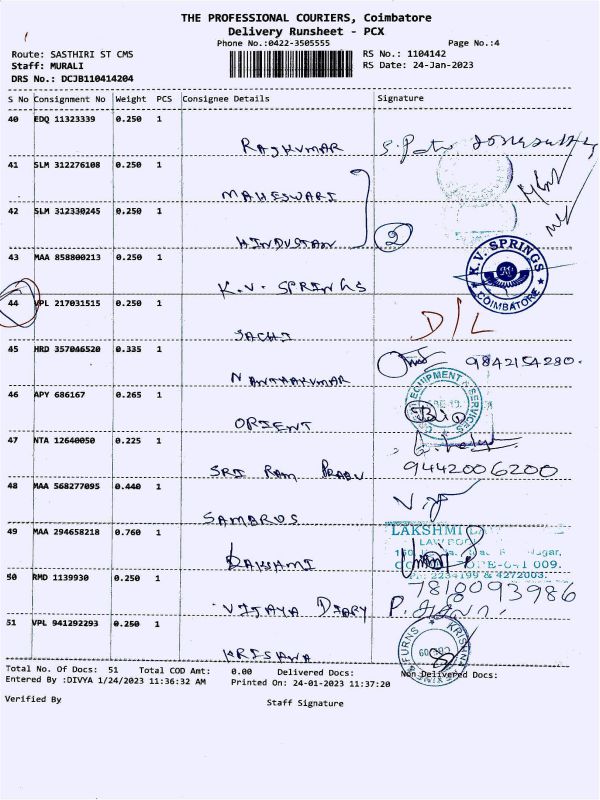 THE PROFESSIONAL COURIERS, Coimbatore
Delivery Runsheet - PCX
Phone No.:0422-3505555
Page No.:4
Route: SASTHIRI ST CMS
RS No.: 1104142
Staff: MURALI
RS Date: 24-Jan-2023
DRS No.: DCJB110414204
S No Consignment No Weight PCS Consignee Details Signature
40 EDQ 11323339 0.250 1
RAJKUMAR
41 SLM 312276108 0.250 1
MAHESWARI
42 SLM 312330245 0.250 1
HINDUSTAN 2
43 MAA 858800213 0.250 1
K.V. SPRINGS
K.V. SPRINGS COIMBATORE
44 VPL 217031515 0.250 1
SACHI D/L
45 HRD 357046520 0.335 1
NANTHAKUMAR 9842154280.
46 APY 686167 0.265 1
ORIENT
EQUIPMENT & SERVICES
47 NTA 12640050 0.225 1
SRI RAM PRABU 9442006200
48 MAA 568277095 0.440 1
SAMBROS
49 MAA 294658218 0.760 1
LAKSHMI
LAKSHMI
009.
2234199 & 4272003.
50 RMD 1139930 0.250 1
7810093986
VIJAYA DIARY
51 VPL 941292293 0.250 1
KRISHNA
KRISHNA FURNS
Total No. Of Docs: 51 Total COD Amt: 0.00 Delivered Docs: Non Delivered Docs:
Entered By :DIVYA 1/24/2023 11:36:32 AM Printed On: 24-01-2023 11:37:20
Verified By Staff Signature